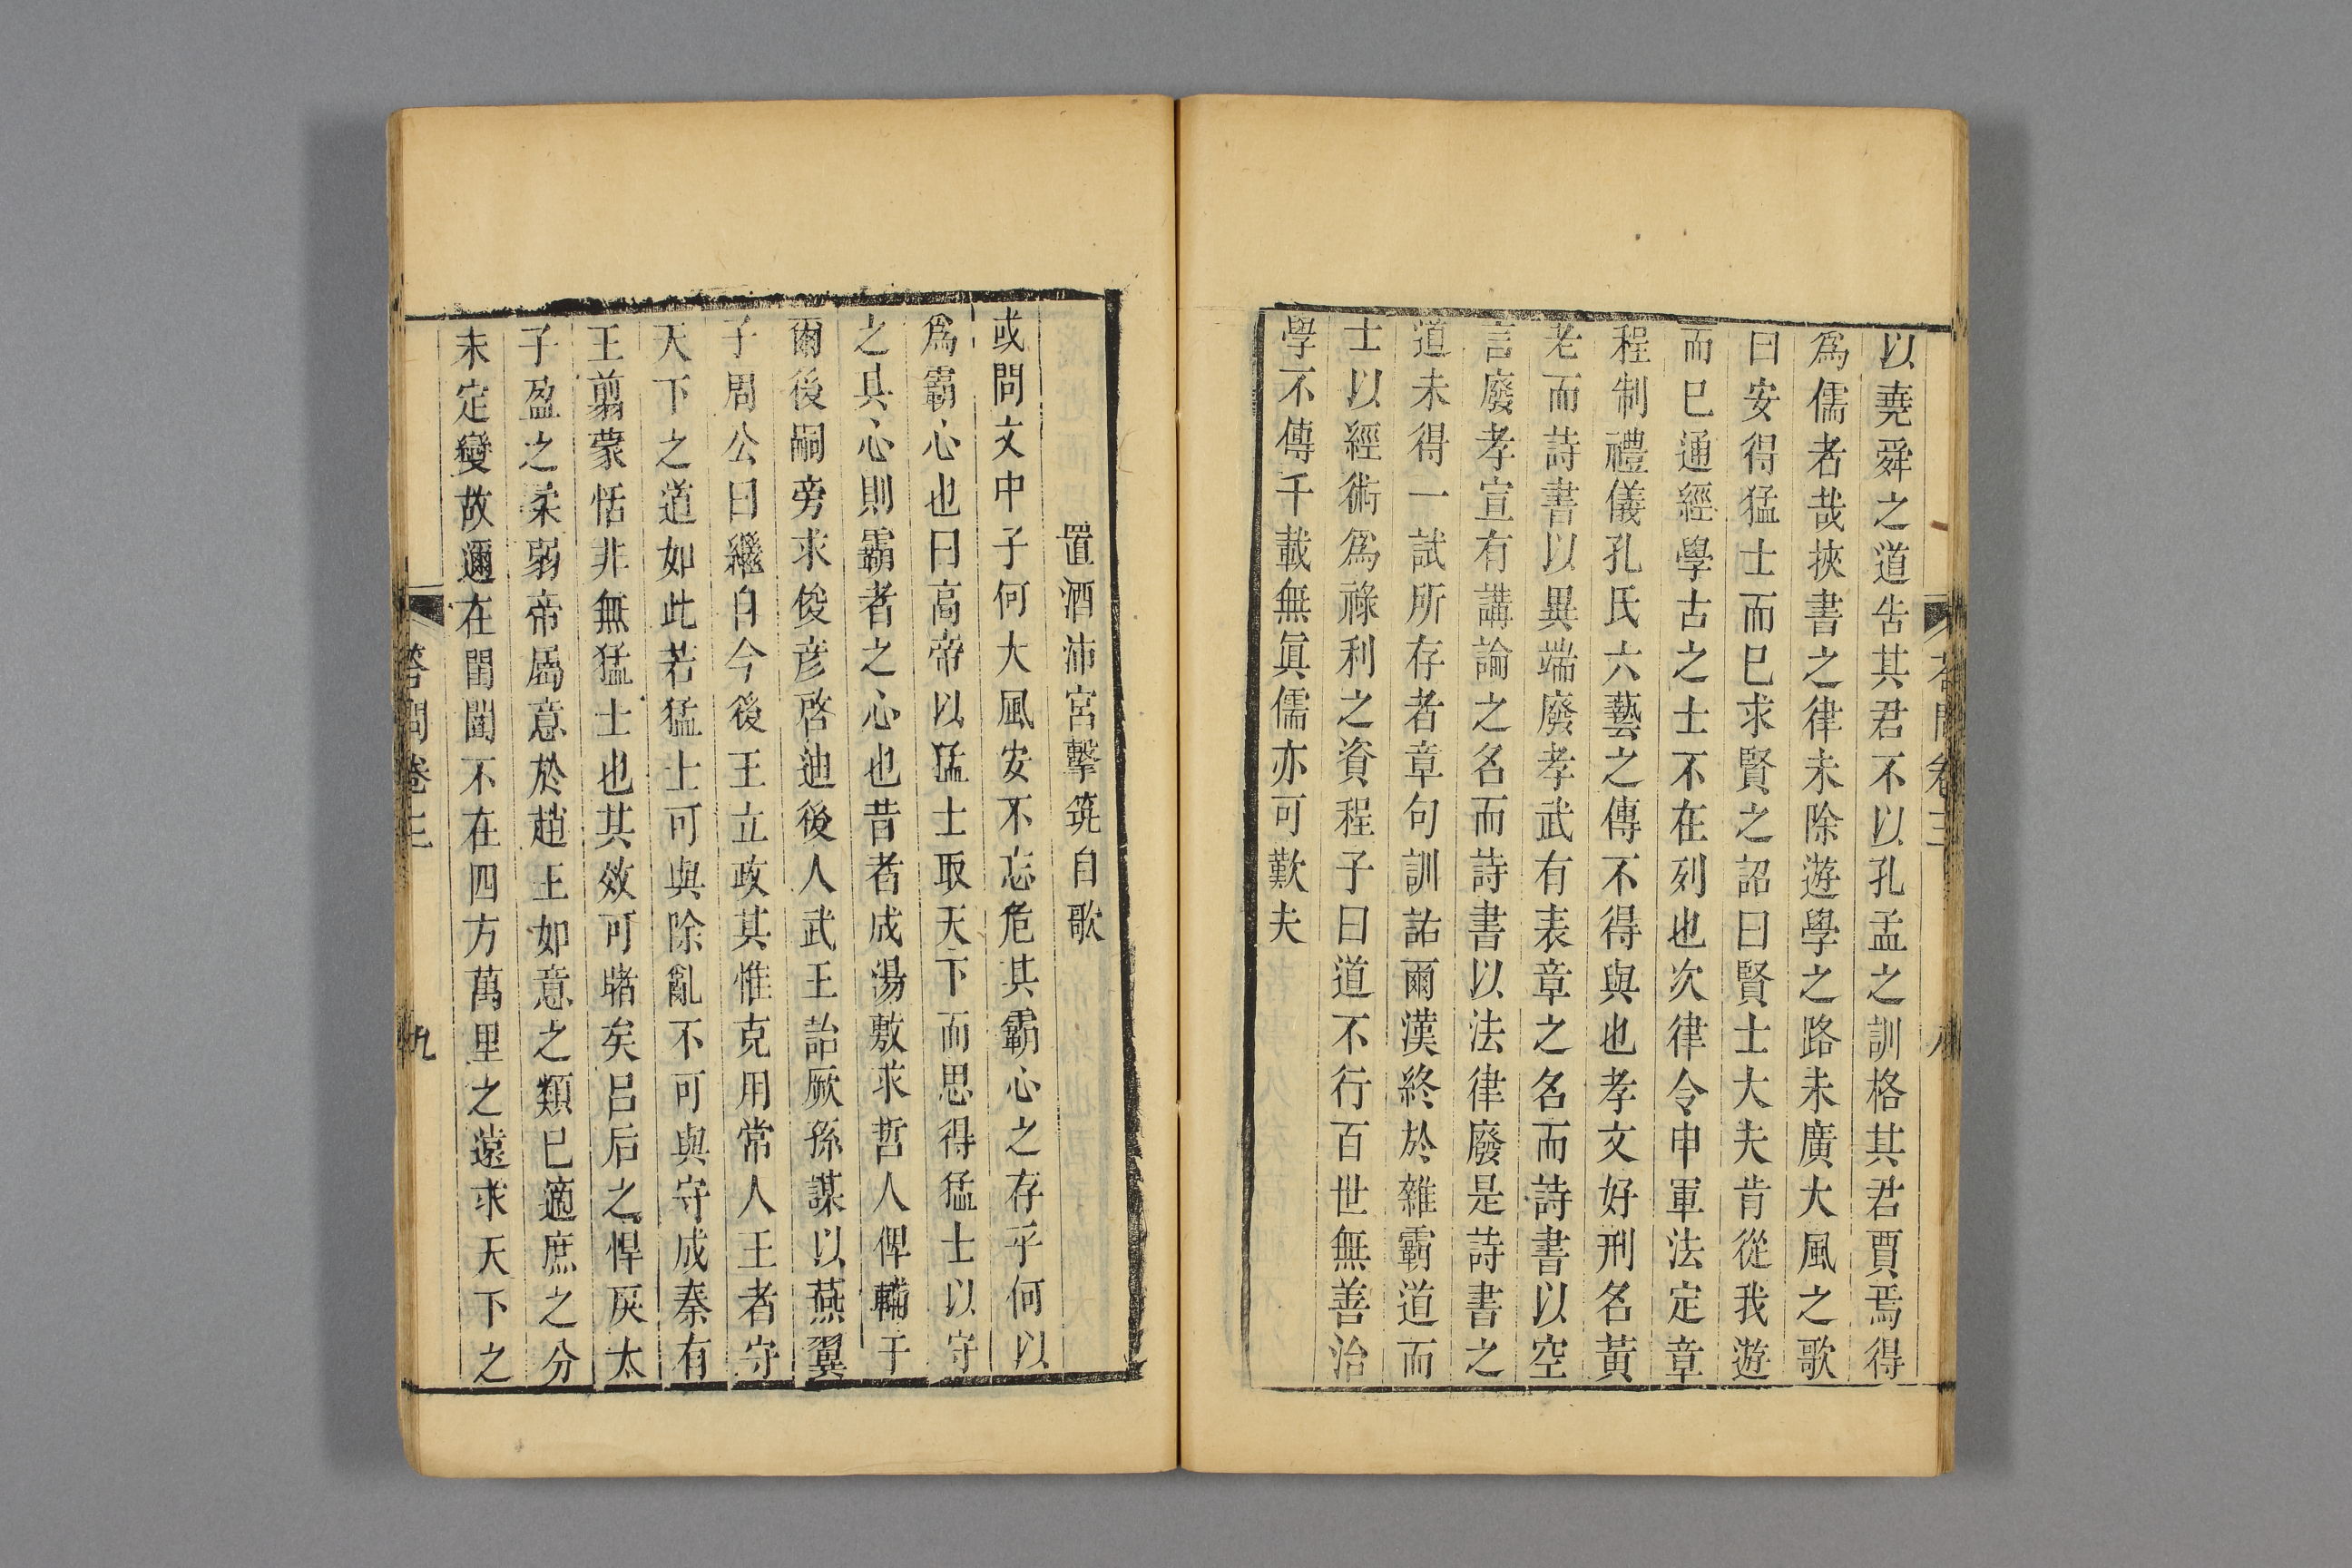 以堯舜之道告其君不以孔孟之訓格其君賈焉得
爲儒者哉挾書之律未除遊學之路未廣大風之歌
曰安得猛士而已求賢之詔曰賢士大夫肯從我遊
而已通經學古之士不在列也次律令申軍法定章
程制禮儀孔氏六藝之傳不得與也孝文好刑名黃
老而詩書以異端廢孝武有表章之名而詩書以空
言廢孝宣有講論之名而詩書以法律廢是詩書之
道未得一試所存者章句訓詁爾漢終於雜霸道而
士以經術爲祿利之資程子曰道不行百世無善治
學不傳千載無眞儒亦可歎夫
答問卷三
八
置酒沛宮擊筑自歌
或問文中子何大風安不忘危其霸心之存乎何以
爲霸心也曰高帝以猛士取天下而思得猛士以守
之其心則霸者之心也昔者成湯敷求哲人俾輔于
爾後嗣旁求俊彦啓迪後人武王詒厥孫謀以燕翼
子周公曰繼自今後王立政其惟克用常人王者守
天下之道如此若猛士可與除亂不可與守成秦有
王翦蒙恬非無猛士也其效可睹矣呂后之悍戾太
子盈之柔弱帝屬意於趙王如意之類已適庶之分
未定變故邇在閨闥不在四方萬里之遠求天下之
答問卷三
九